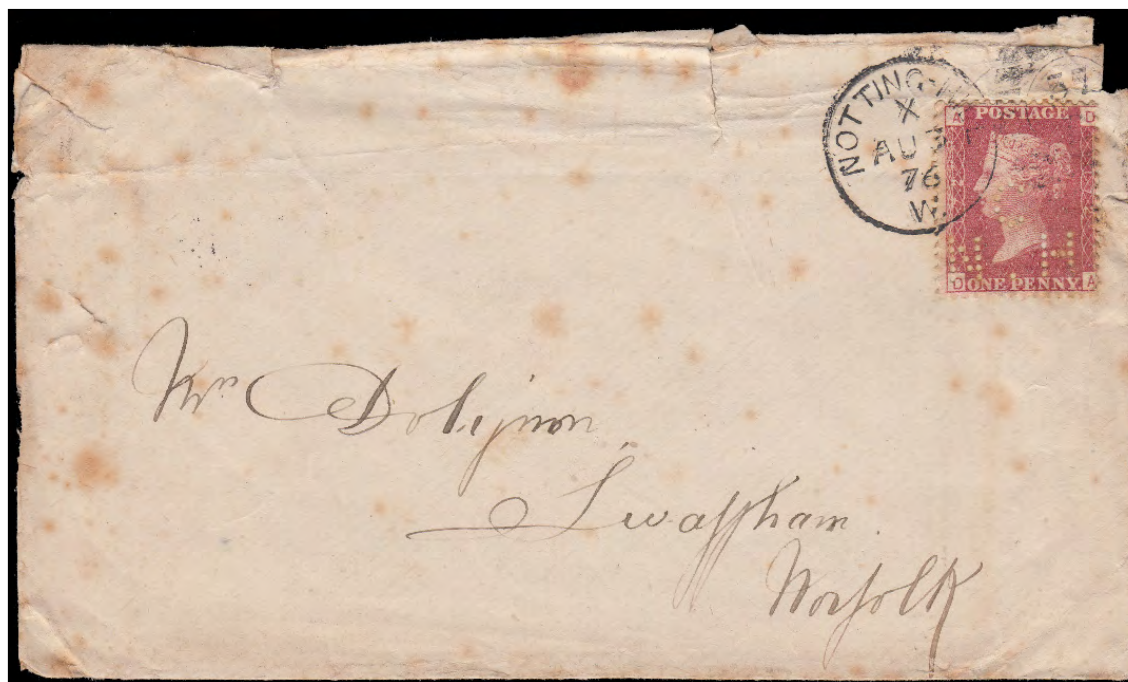 NOTTING-H
X
AU 31
76
W.
57
A POSTAGE D
D ONE PENNY A
Mr Dolignon
Swaffham
Norfolk